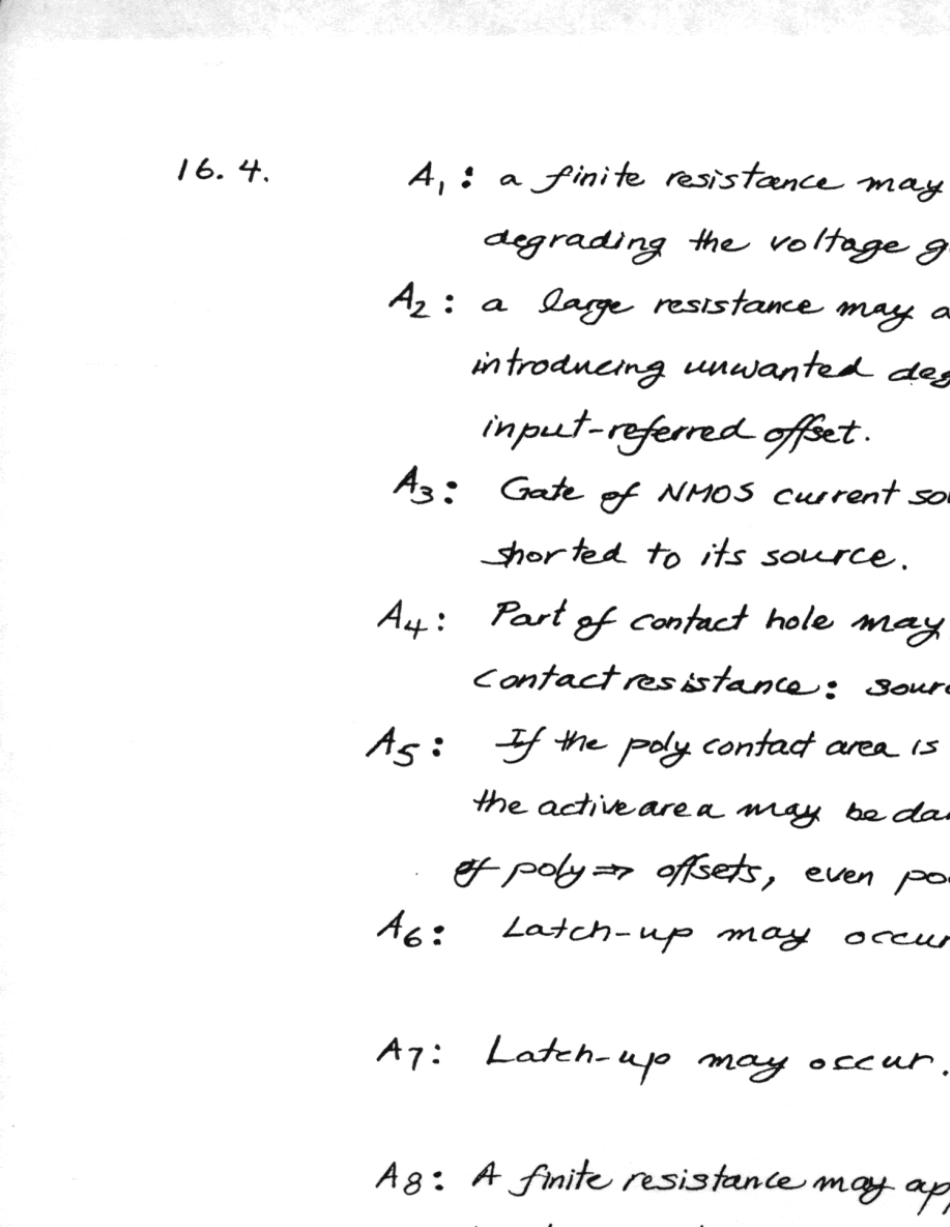 16.4. A1: a finite resistance may
degrading the voltage g
A2: a large resistance may a
introducing unwanted deg
input-referred offset.
A3: Gate of NMOS current so
shorted to its source.
A4: Part of contact hole may
contact resistance: sour
A5: If the poly contact area is
the active area may be da
of poly ⇒ offsets, even po
A6: Latch-up may occur
A7: Latch-up may occur.
A8: A finite resistance may app